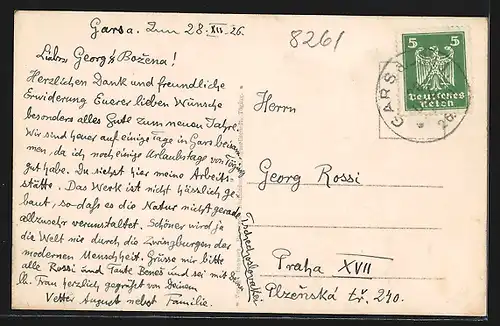 Garsa. Inn 28.XII.26.
8261
Liebe Georg & Božena!
Herzlichen Dank und freundliche
Erwiderung Euerer lieben Wünsche
besonders alles Gute zum neuen Jahre.
Wir sind heuer auf einige Tage in Gars beisam
men, da ich noch einige Urlaubstage von Töging
gut habe. Du siehst hier meine Arbeits-
stätte. Das Werk ist nicht hässlich ge-
baut, so daß es die Natur nicht gerade
allzusehr verunstaltet. Schöner wird ja
die Welt nie durch die Zwingburgen der
modernen Menschheit. Grüsse mir bitte
alle Rossi und Tante Beneš und sei mit Deiner
lb. Frau herzlich gegrüßt von Deinem
Vetter August nebst Familie.
5 5
Deutsches
Reich
GARS
26.
Herrn
Georg Rossi
Praha XVII
Plzeňská tř. 240.
Tschechoslovakei